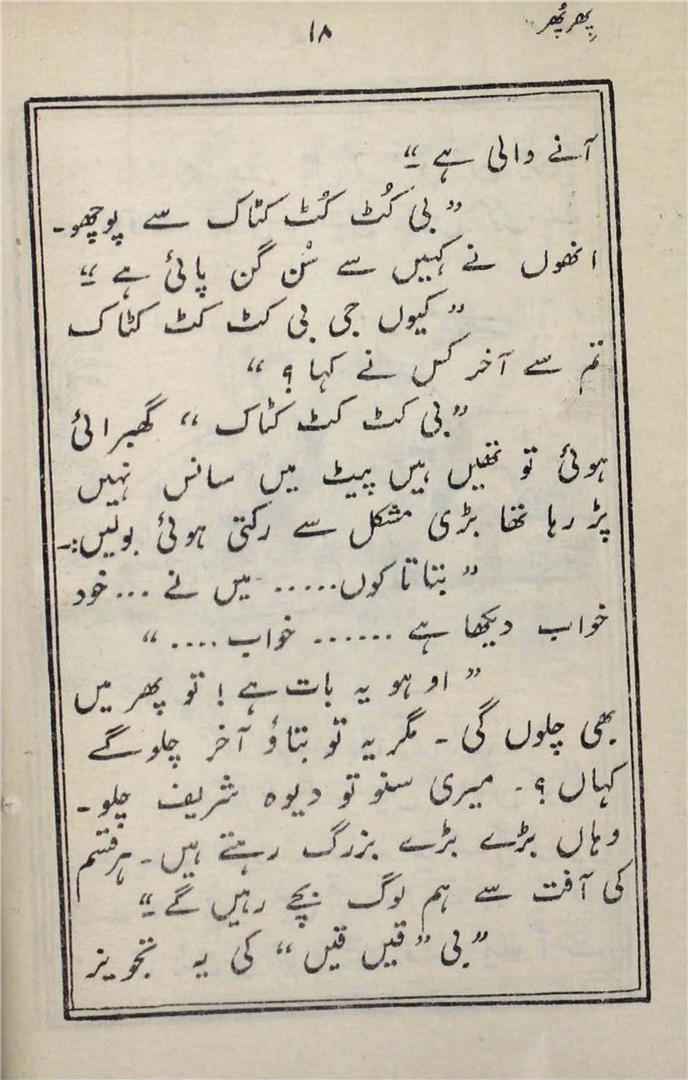 پھر پھر
۱۸
آنے والی ہے ‟
” بی کُٹ کُٹ کٹاک سے پوچھو۔
انھوں نے کہیں سے سُن گُن پائی ہے ‟
” کیوں جی بی کٹ کٹ کٹاک
تم سے آخر کس نے کہا ؟ “
” بی کٹ کٹ کٹاک “ گھبرائی
ہوئی تو تھیں ہیں پیٹ میں سانس نہیں
پڑ رہا تھا بڑی مشکل سے رکتی ہوئی بولیں:۔
” بتاتا کوں..... میں نے ... خود
خواب دیکھا ہے ...... خواب .... “
” او ہو یہ بات ہے ! تو پھر میں
بھی چلوں گی ۔ مگر یہ تو بتاؤ آخر چلو گے
کہاں ؟ ۔ میری سنو تو دیوہ شریف چلو ۔
وہاں بڑے بڑے بزرگ رہتے ہیں ۔ ہر قسم
کی آفت سے ہم لوگ بچے رہیں گے ‟
” بی ” قیں قیں “ کی یہ تجویز